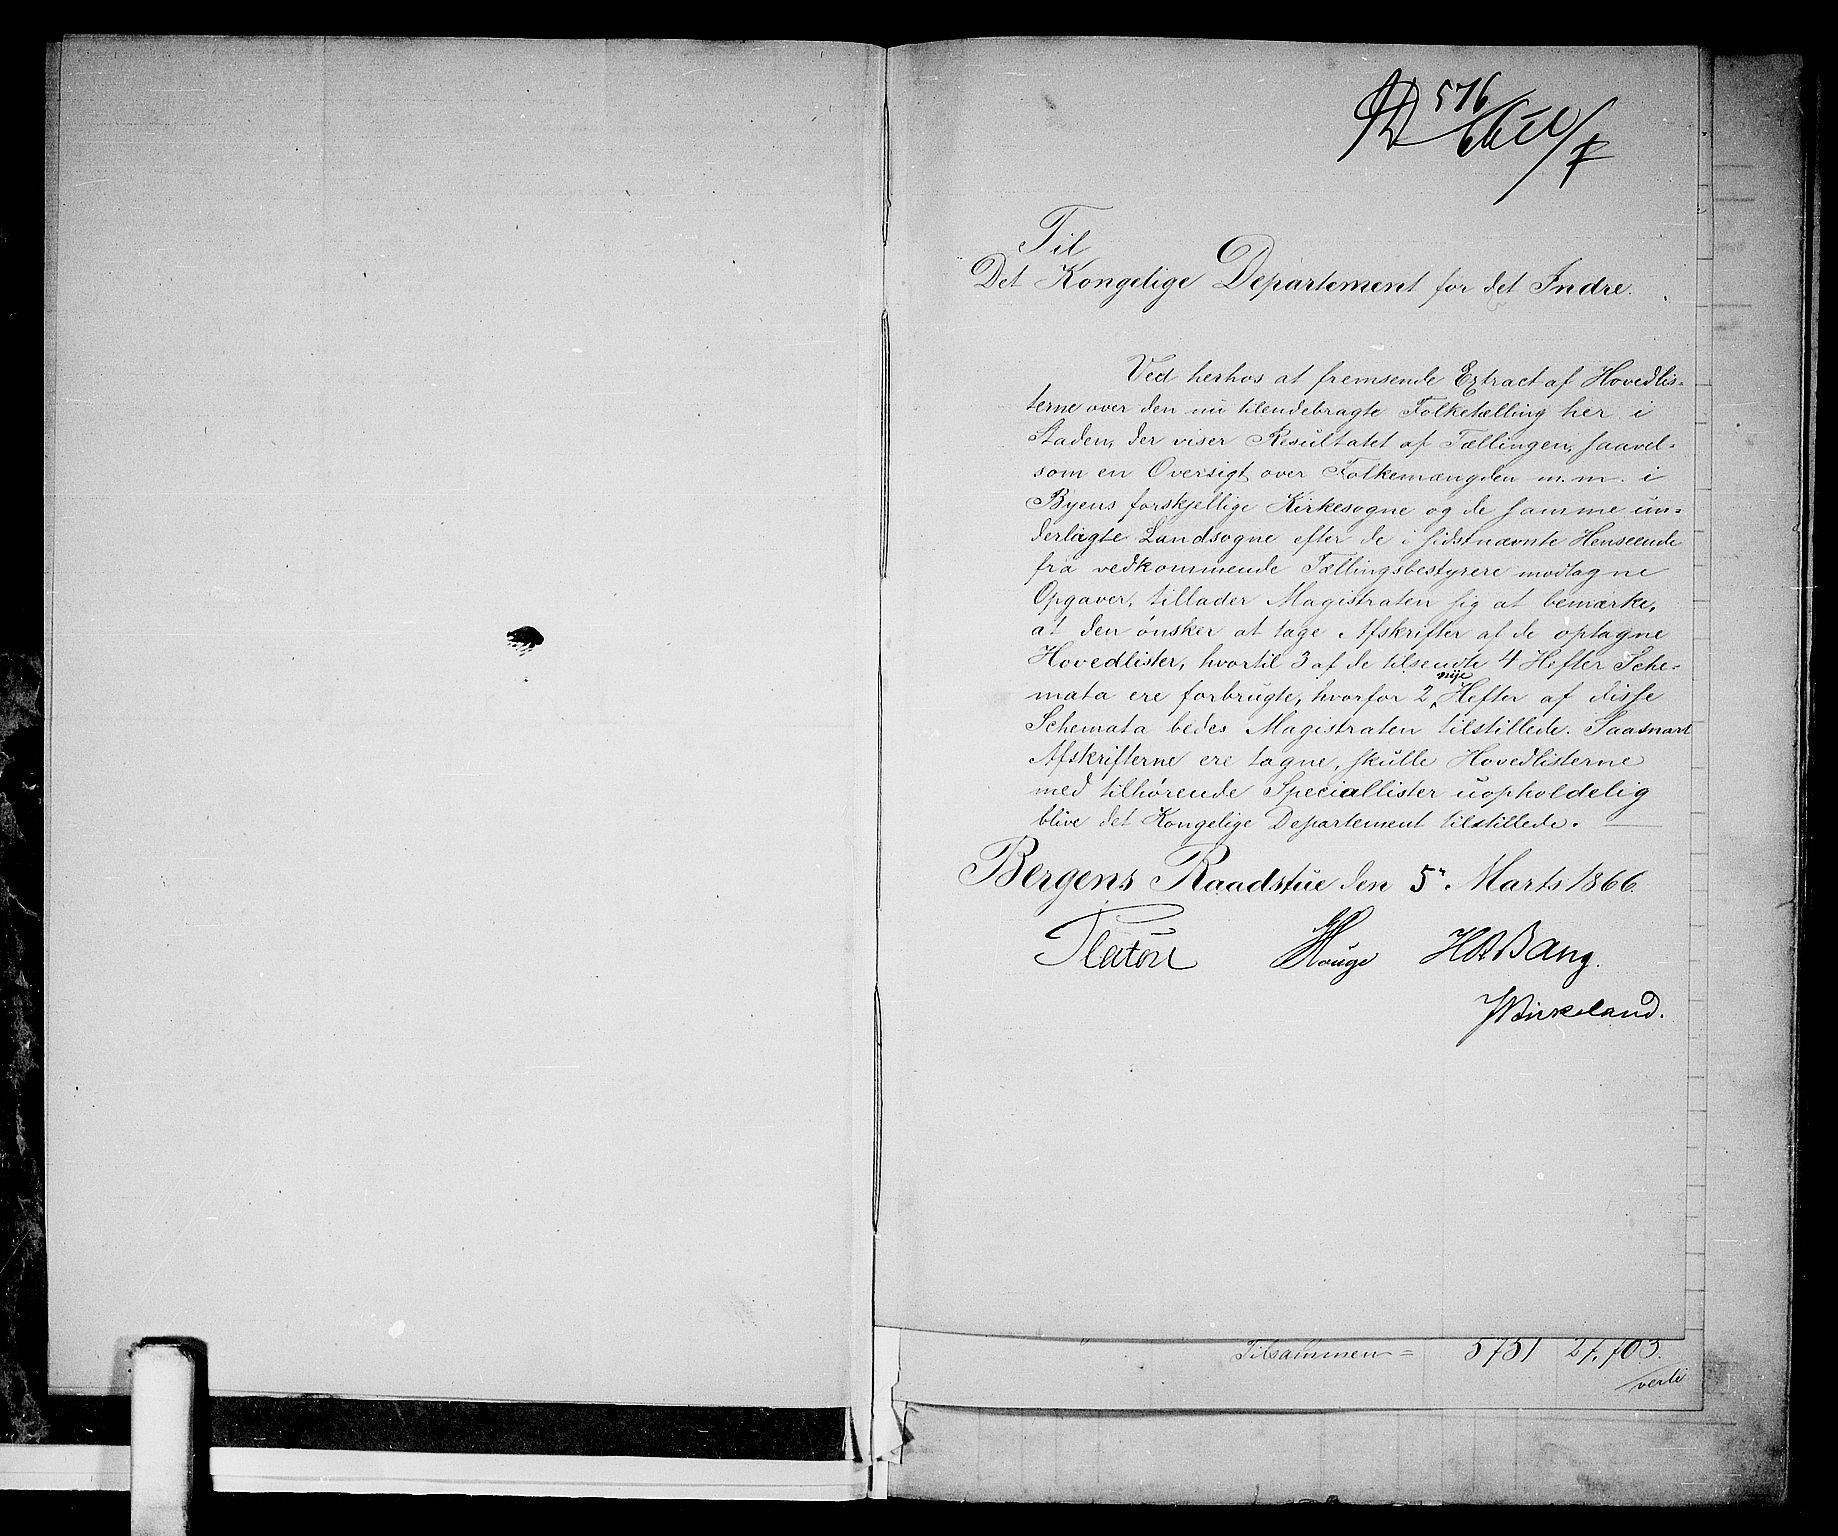 576
Til
Det Kongelige Departement for det Indre.
Ved herhos at fremsende Extract af Hovedlis-
terne over den nu tilendebragte Folketælling her i
Staden, der viser Resultatet af Tællingen, saavel-
som en Oversigt over Folkemængden m.m. i
Byens forskjellige Kirkesogne og de samme un-
derlagte Landsogne efter de i sidstnævnte Henseende
fra vedkommende Tællingsbestyrere modtagne
Opgaver, tillader Magistraten sig at bemærke,
at den ønsker at tage Afskrifter af de optagne
Hovedlister, hvortil 3 af de tilsendte 4 Hefter Sche-
mata ere forbrugte, hvorfor 2 nye Hefter af disse
Schemata bedes Magistraten tilstillede. Saasnart
Afskrifterne ere tagne, skulle Hovedlisterne
med tilhørende Speciallister uopholdelig
blive det Kongelige Departement tilstillede.
Bergens Raadstue den 5te Marts 1866.
Platou Hauge HABang.
JBirkeland.
Tilsammen = 5751 27,703.
verte